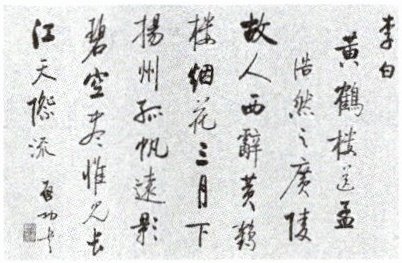 李白
黄鶴楼送孟
浩然之廣陵
故人西辭黄鶴
楼烟花三月下
揚州孤帆遠影
碧空尽惟見長
江天際流 启功书